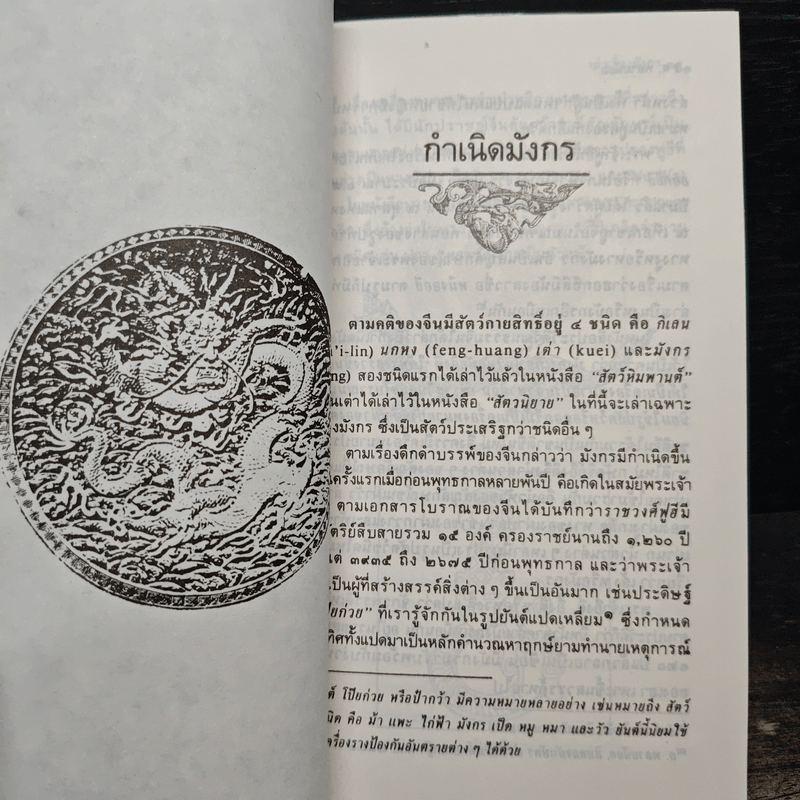 กำเนิดมังกร
ตามคติของจีนมีสัตว์กายสิทธิ์อยู่ ๔ ชนิด คือ กิเลน
'i-lin) นกหง (feng-huang) เต่า (kuei) และมังกร
ng) สองชนิดแรกได้เล่าไว้แล้วในหนังสือ “สัตว์หิมพานต์”
นเต่าได้เล่าไว้ในหนังสือ “สัตวนิยาย” ในที่นี้จะเล่าเฉพาะ
งมังกร ซึ่งเป็นสัตว์ประเสริฐกว่าชนิดอื่น ๆ
ตามเรื่องดึกดำบรรพ์ของจีนกล่าวว่า มังกรมีกำเนิดขึ้น
ครั้งแรกเมื่อก่อนพุทธกาลหลายพันปี คือเกิดในสมัยพระเจ้า
ตามเอกสารโบราณของจีนได้บันทึกว่าราชวงศ์ฟูฮีมี
ตริย์สืบสายรวม ๑๕ องค์ ครองราชย์นานถึง ๑,๒๖๐ ปี
แต่ ๓๙๓๕ ถึง ๒๖๗๕ ปีก่อนพุทธกาล และว่าพระเจ้า
เป็นผู้ที่สร้างสรรค์สิ่งต่าง ๆ ขึ้นเป็นอันมาก เช่นประดิษฐ์
ป๊ยก่วย” ที่เรารู้จักกันในรูปยันต์แปดเหลี่ยม๑ ซึ่งกำหนด
ทิศทั้งแปดมาเป็นหลักคำนวณหาฤกษ์ยามทำนายเหตุการณ์
ต์ โป๊ยก่วย หรือปากว้า มีความหมายหลายอย่าง เช่นหมายถึง สัตว์
นิด คือ ม้า แพะ ไก่ฟ้า มังกร เป็ด หมู หมา และวัว ยันต์นี้นิยมใช้
ครื่องรางป้องกันอันตรายต่าง ๆ ได้ด้วย